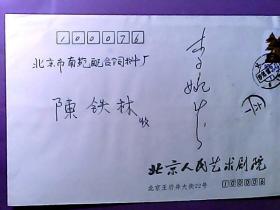 100076
北京市南苑配合饲料厂
陳铁林 收
北京人民艺术剧院
北京王府井大街22号
100006